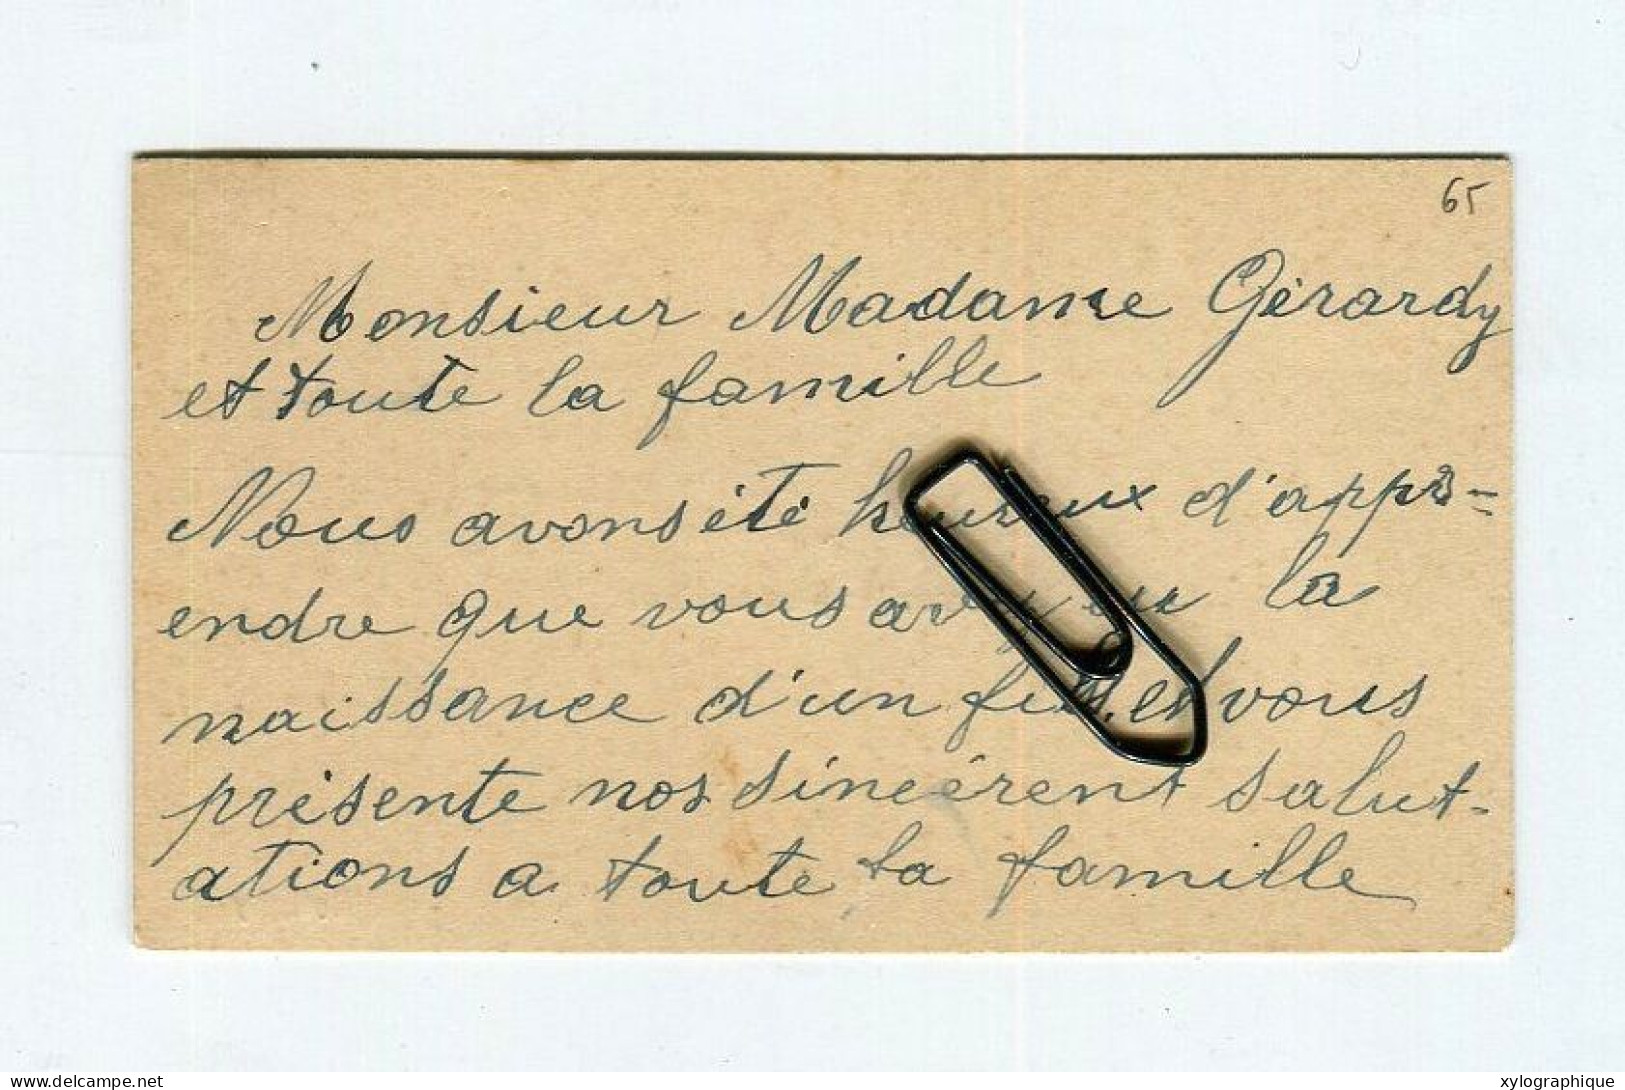 65
Monsieur Madame Gérardy
et toute la famille
Nous avons été heureux d'appr-
endre que vous avez eu la
naissance d'un fils, et vous
présente nos sincérent salut-
ations a toute la famille
www.delcampe.net
xylographique